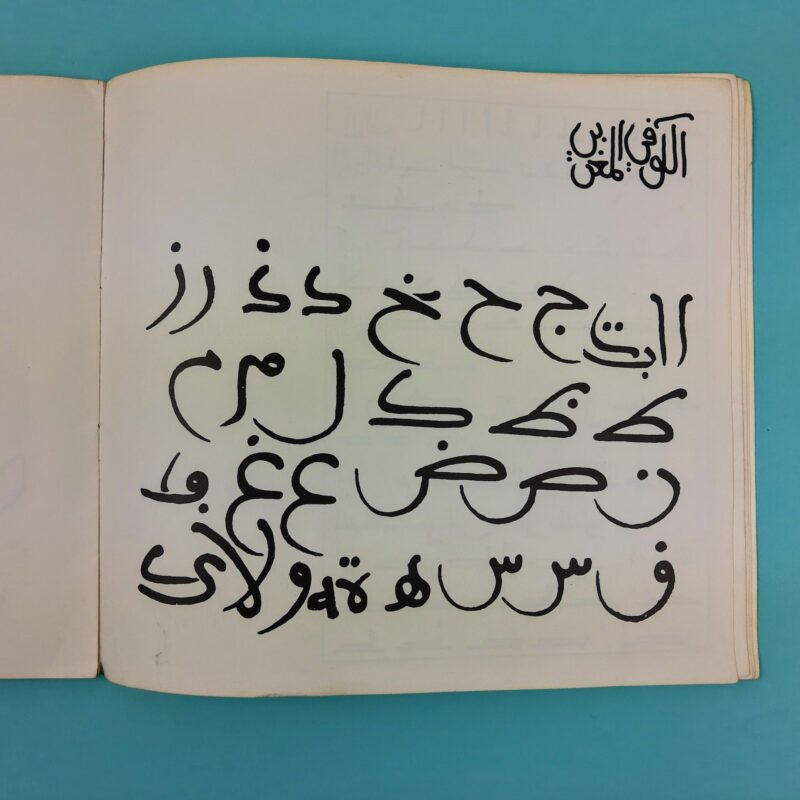 الكوفي المغربي
ا ا ب ت ج ح خ د ذ ر ز
ط ظ ك ل م م
ن ص ض ع غ ڢ
ف س س ه ة ه و لا ى